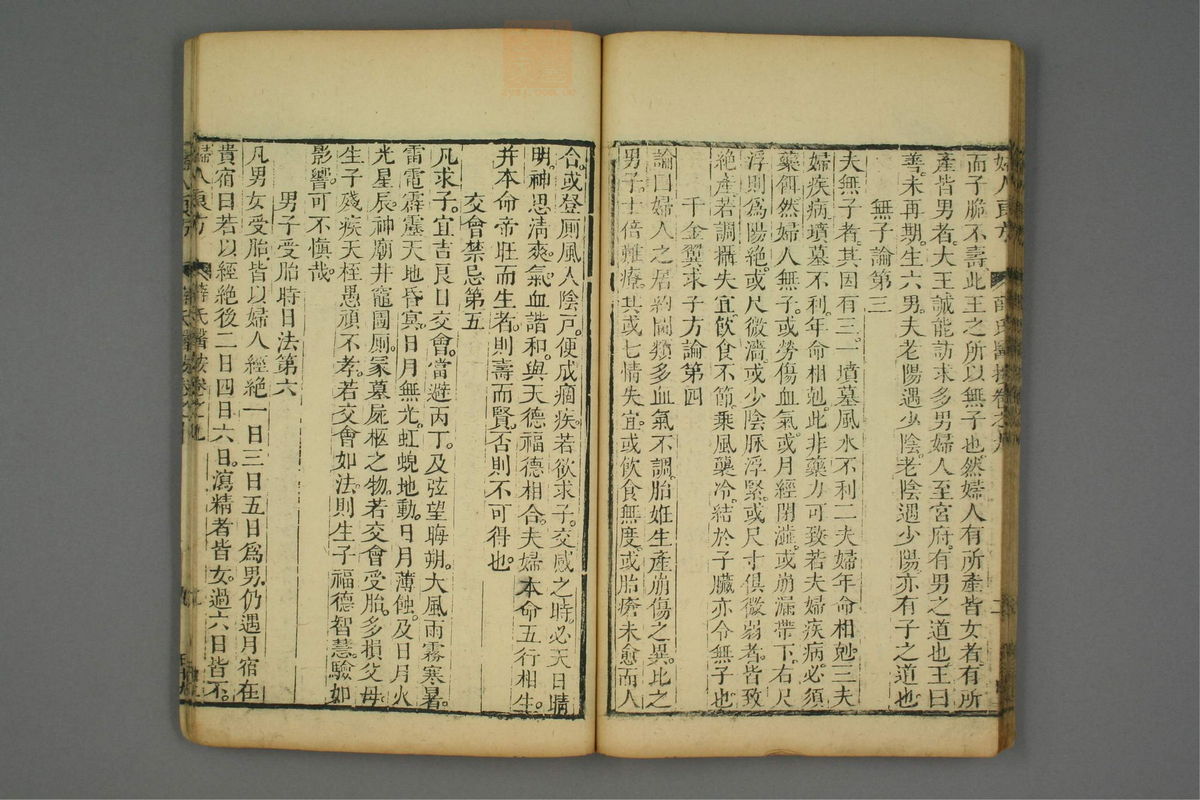 而子脆不壽此王之所以無子也然婦人有所產皆女者有所
產皆男者大王誠能訪求多男婦人至宮府有男之道也王曰
善未再期生六男夫老陽遇少陰老陰遇少陽亦有子之道也
無子論第三
夫無子者其因有三一墳墓風水不利二夫婦年命相剋三夫
婦疾病墳墓不利年命相剋此非藥力可致若夫婦疾病必須
藥餌然婦人無子或勞傷血氣或月經閉澁或崩漏帶下右尺
浮則為陽絶或尺微濇或少陰脉浮緊或尺寸俱微弱者皆致
絶產若調攝失宜飲食不節乘風襲冷結於子臟亦令無子也
千金翼求子方論第四
論曰婦人之居約閫類多血氣不調胎姙生產崩傷之異比之
男子十倍難療其或七情失宜或飲食無度或胎瘡未愈而人
合或登厠風人陰戸便成痼疾若欲求子交感之時必天日晴
明神思清爽氣血諧和與天德福德相合夫婦本命五行相生
并本命帝旺而生者則壽而賢否則不可得也
交會禁忌第五
凡求子宜吉良日交會當避丙丁及弦望晦朔大風雨霧寒暑
雷電霹靂天地昏㝠日月無光虹蜺地動日月薄蝕及日月火
光星辰神廟井竈圊厠冢墓屍柩之物若交會受胎多損父母
生子殘疾夭枉愚頑不孝若交會如法則生子福德智慧驗如
影響可不慎哉
男子受胎時日法第六
凡男女受胎皆以婦人經絶一日三日五日為男仍遇月宿在
貴宿日若以經絶後二日四日六日瀉精者皆女過六日皆不
婦人良方